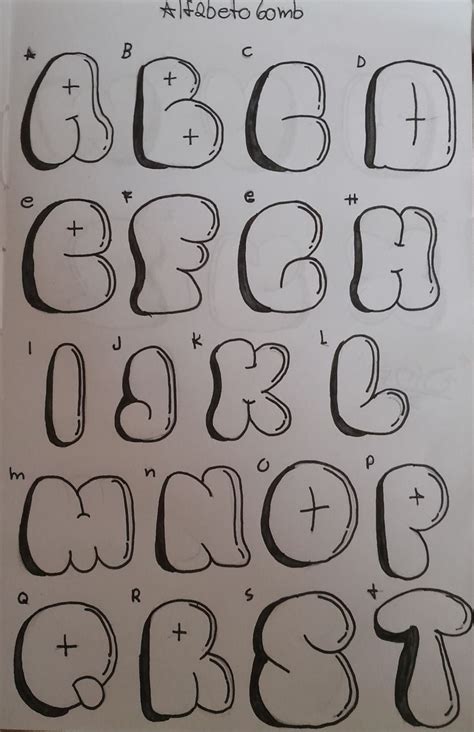 Alfabeto bomb
A B C D
A B C D
e F G H
E F G H
I J K L
I J K L
m n O P
M N O P
Q R S t
Q R S T